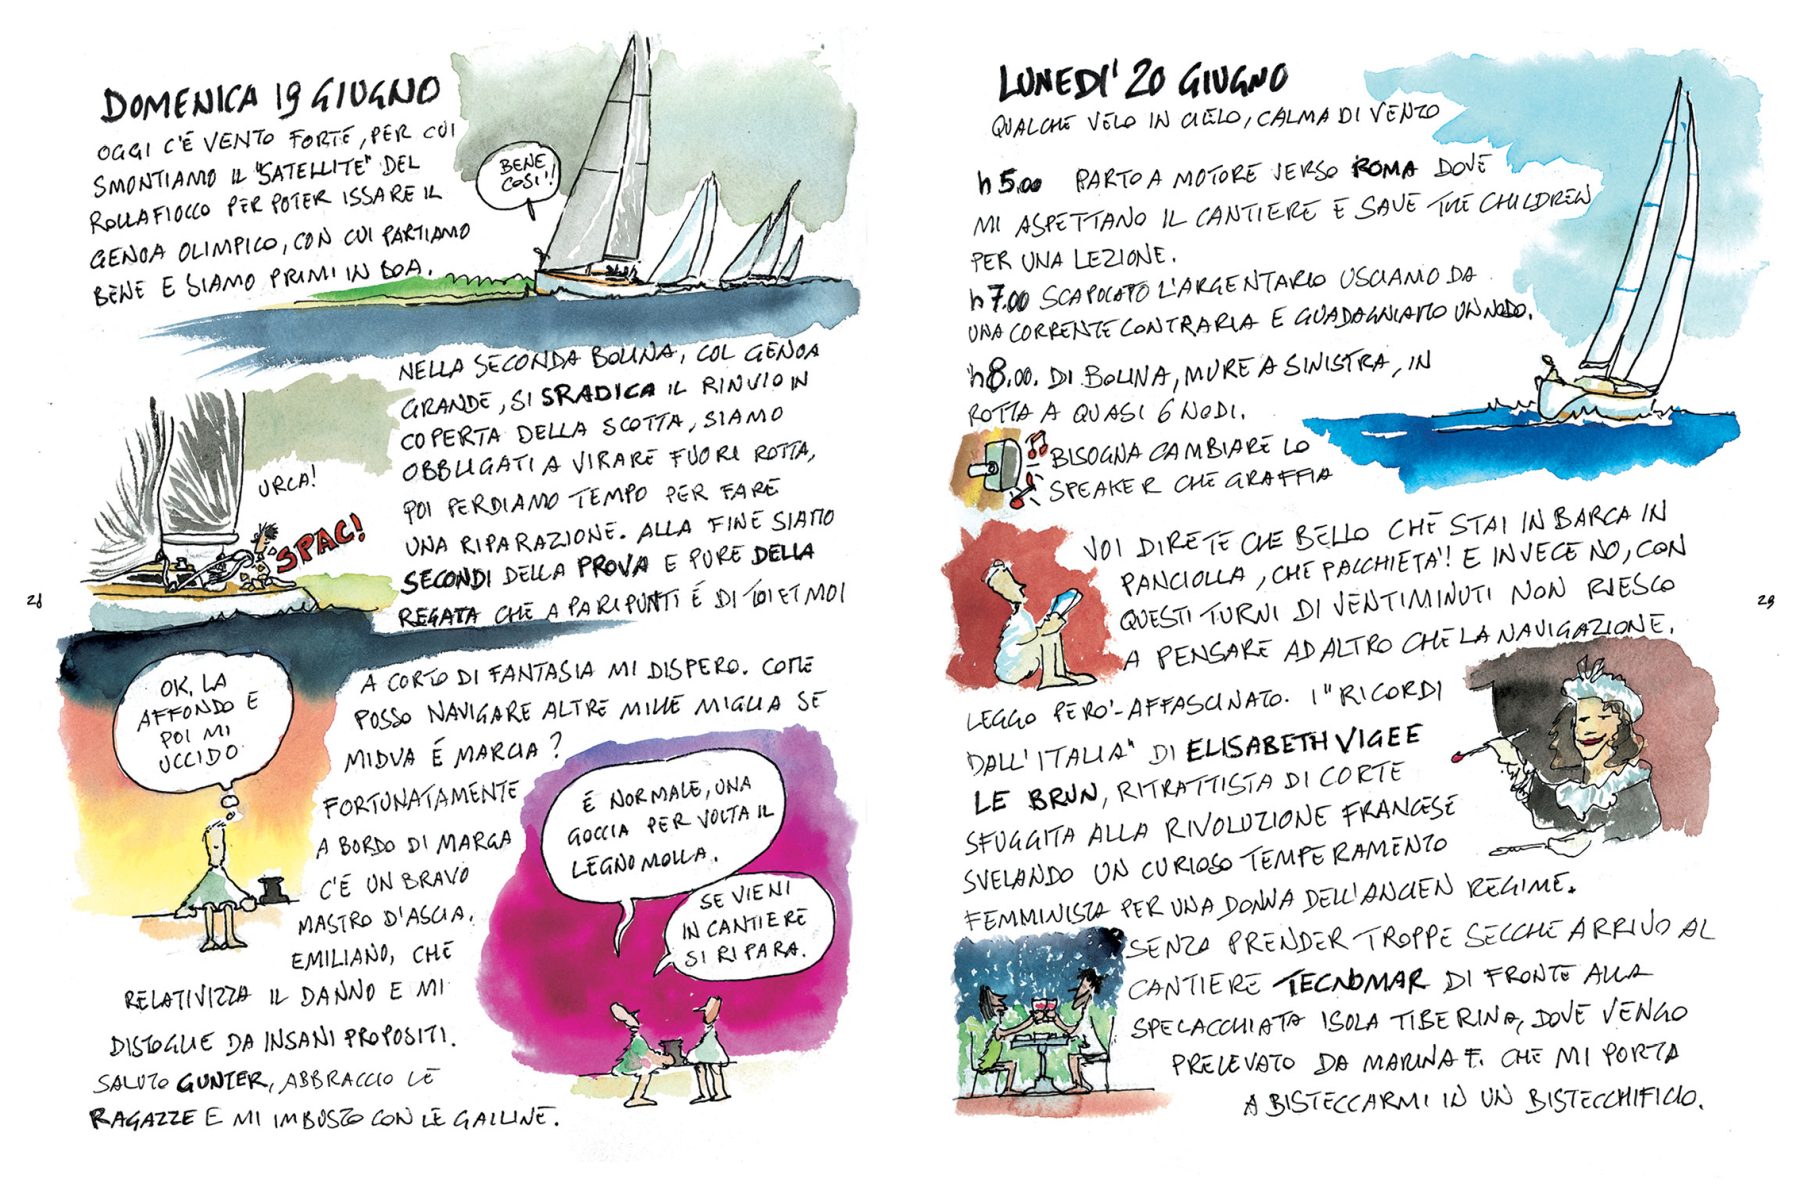 DOMENICA 19 GIUGNO
OGGI C'É VENTO FORTE, PER CUI
SMONTIAMO IL "SATELLITE" DEL
ROLLAFIOCCO PER POTER ISSARE IL
GENOA OLIMPICO, CON CUI PARTIAMO
BENE E SIAMO PRIMI IN BOA.
BENE
COSI'!!
NELLA SECONDA BOLINA, COL GENOA
GRANDE, SI SRADICA IL RINVIO IN
COPERTA DELLA SCOTTA, SIAMO
OBBLIGATI A VIRARE FUORI ROTTA,
POI PERDIAMO TEMPO PER FARE
UNA RIPARAZIONE. ALLA FINE SIAMO
SECONDI DELLA PROVA E PURE DELLA
REGATA CHE A PARI PUNTI É DI TOI ET MOI
URCA!
SPAC!
28
OK, LA
AFFONDO E
POI MI
UCCIDO
A CORTO DI FANTASIA MI DISPERO. COME
POSSO NAVIGARE ALTRE MILLE MIGLIA SE
MIDVA É MARCIA?
FORTUNATAMENTE
A BORDO DI MARGA
C'É UN BRAVO
MASTRO D'ASCIA.
EMILIANO, CHE
RELATIVIZZA IL DANNO E MI
DISTOGLIE DA INSANI PROPOSITI.
SALUTO GUNTER, ABBRACCIO LE
RAGAZZE E MI IMBUSTO CON LE GALLINE.
É NORMALE, UNA
GOCCIA PER VOLTA IL
LEGNO MOLLA.
SE VIENI
IN CANTIERE
SI RIPARA.
LUNEDI' 20 GIUGNO
QUALCHE VELO IN CIELO, CALMA DI VENTO
h 5.00 PARTO A MOTORE VERSO ROMA DOVE
MI ASPETTANO IL CANTIERE E SAVE THE CHILDREN
PER UNA LEZIONE.
h 7.00 SCAPOLATO L'ARGENTARIO USCIAMO DA
UNA CORRENTE CONTRARIA E GUADAGNIAMO UN NODO.
h 8.00. DI BOLINA, MURE A SINISTRA, IN
ROTTA A QUASI 6 NODI.
BISOGNA CAMBIARE LO
SPEAKER CHE GRAFFIA
VOI DIRETE CHE BELLO CHE STAI IN BARCA IN
PANCIOLLA, CHE PACCHIETA'! E INVECE NO, CON
QUESTI TURNI DI VENTIMINUTI NON RIESCO
A PENSARE AD ALTRO CHE LA NAVIGAZIONE.
29
LEGGO PERO'-AFFASCINATO. I "RICORDI
DALL'ITALIA" DI ELISABETH VIGEE
LE BRUN, RITRATTISTA DI CORTE
SFUGGITA ALLA RIVOLUZIONE FRANCESE
SVELANDO UN CURIOSO TEMPERAMENTO
FEMMINISTA PER UNA DONNA DELL'ANCIEN REGIME.
SENZA PRENDER TROPPE SECCHE ARRIVO AL
CANTIERE TECNOMAR DI FRONTE ALLA
SPELACCHIATA ISOLA TIBERINA, DOVE VENGO
PRELEVATO DA MARINA F. CHE MI PORTA
A BISTECCARMI IN UN BISTECCHIFICIO.